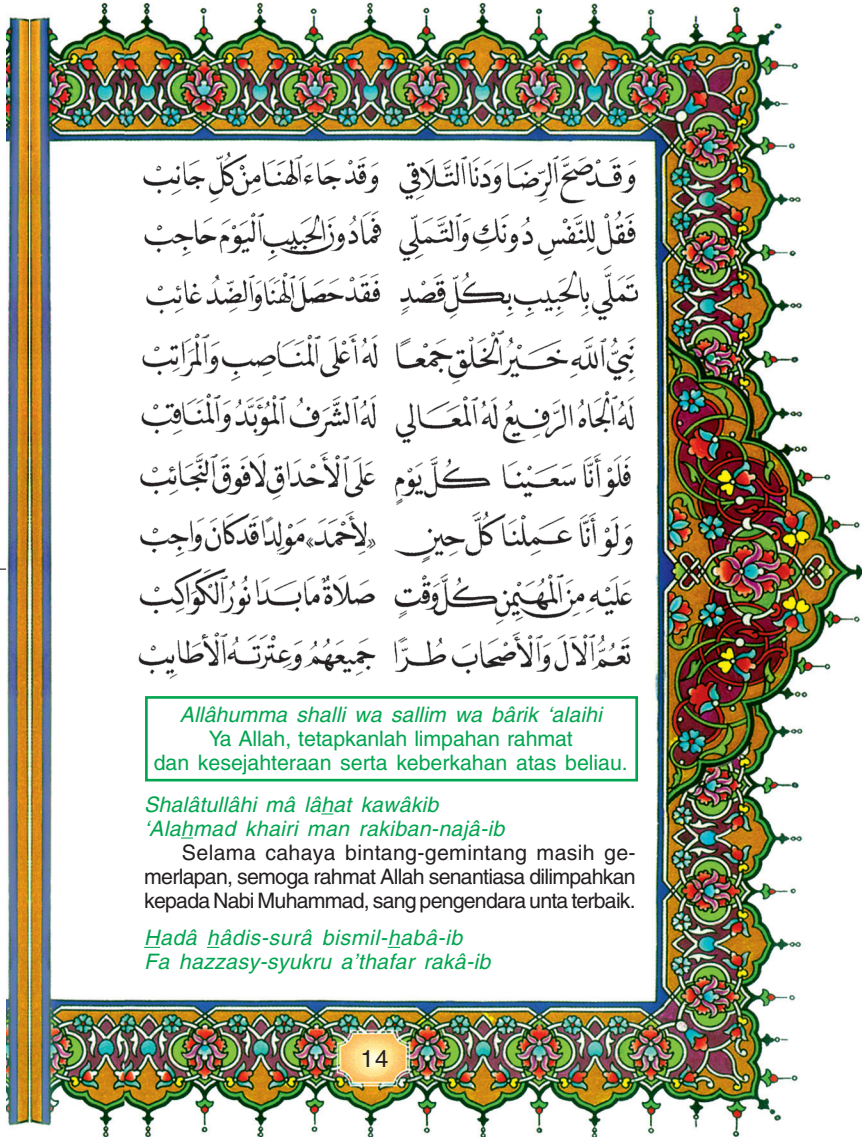 وَقَدْ صَحَّ ٱلرِّضَا وَدَنَا ٱلتَّلَاقِي وَقَدْ جَاءَ ٱلْهَنَا مِنْ كُلِّ جَانِبْ
فَقُلْ لِلنَّفْسِ دُونَكِ وَٱلتَّمَلِّي فَمَا دُونَ ٱلْحَبِيبِ ٱلْيَوْمَ حَاجِبْ
تَمَلَّي بِالْحَبِيبِ بِكُلِّ قَصْدٍ فَقَدْ حَصَلَ ٱلْهَنَا وَٱلضِّدُّ غَائِبْ
نَبِيُّ ٱللَّهِ خَيْرُ ٱلْخَلْقِ جَمْعًا لَهُ أَعْلَى ٱلْمَنَاصِبِ وَٱلْمَرَاتِبْ
لَهُ ٱلْجَاهُ الرَّفِيعُ لَهُ ٱلْمَعَالِي لَهُ ٱلشَّرَفُ ٱلْمُؤَبَّدُ وَٱلْمَنَاقِبْ
فَلَوْ أَنَّا سَعَيْنَا كُلَّ يَوْمٍ عَلَى ٱلْأَحْدَاقِ لَا فَوْقَ ٱلنَّجَائِبْ
وَلَوْ أَنَّا عَمِلْنَا كُلَّ حِينٍ «لِأَحْمَدَ» مَوْلِدًا قَدْ كَانَ وَاجِبْ
عَلَيْهِ مِنَ ٱلْمُهَيْمِنِ كُلَّ وَقْتٍ صَلَاةٌ مَا بَدَا نُورُ ٱلْكَوَاكِبْ
تَعُمُّ ٱلْآلَ وَٱلْأَصْحَابَ طُرًّا جَمِيعَهُمُ وَعِتْرَتَهُ ٱلْأَطَايِبْ
Allâhumma shalli wa sallim wa bârik ‘alaihi
Ya Allah, tetapkanlah limpahan rahmat
dan kesejahteraan serta keberkahan atas beliau.
Shalâtullâhi mâ lâẖat kawâkib
‘Alaẖmad khairi man rakiban-najâ-ib
Selama cahaya bintang-gemintang masih ge-
merlapan, semoga rahmat Allah senantiasa dilimpahkan
kepada Nabi Muhammad, sang pengendara unta terbaik.
H̱adâ ẖâdis-surâ bismil-ẖabâ-ib
Fa hazzasy-syukru a’thafar rakâ-ib
14